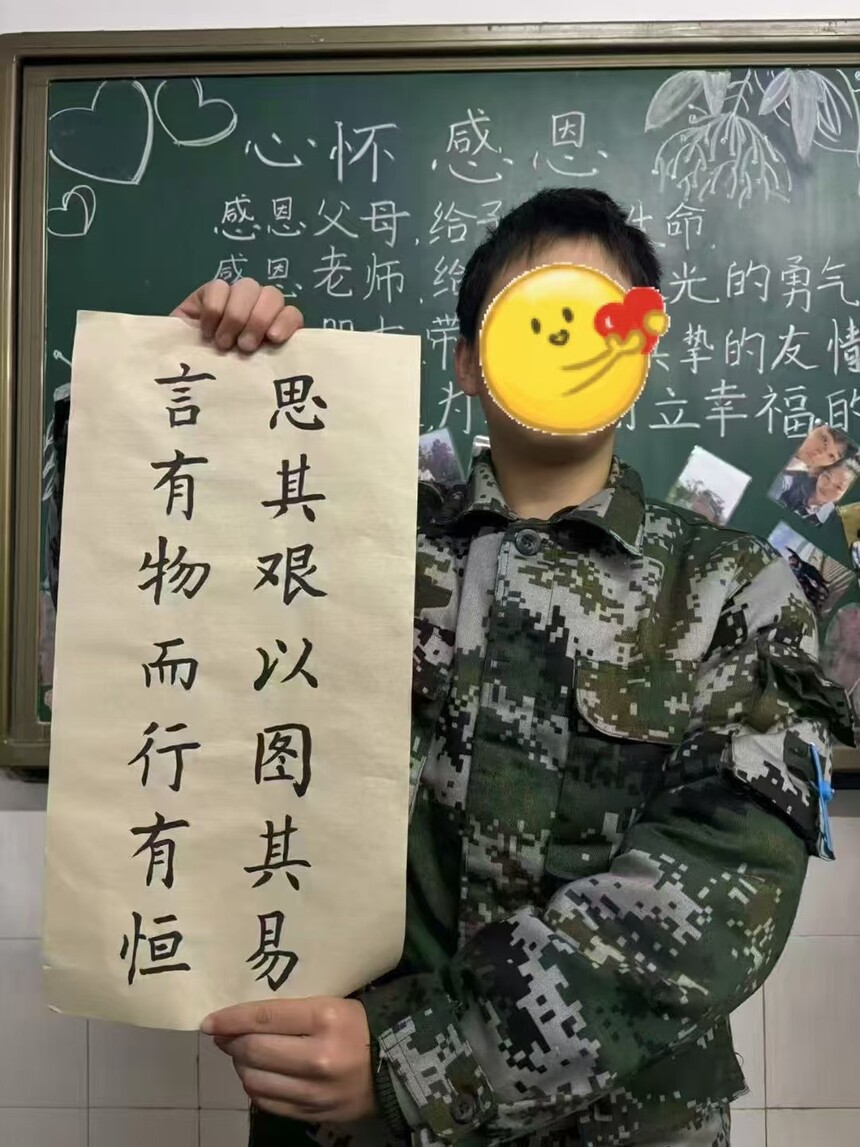 心怀感恩
感恩父母,给 生命,
感恩老师,给 光的勇气
带 挚的友情
为 立幸福的
思其艰以图其易
言有物而行有恒